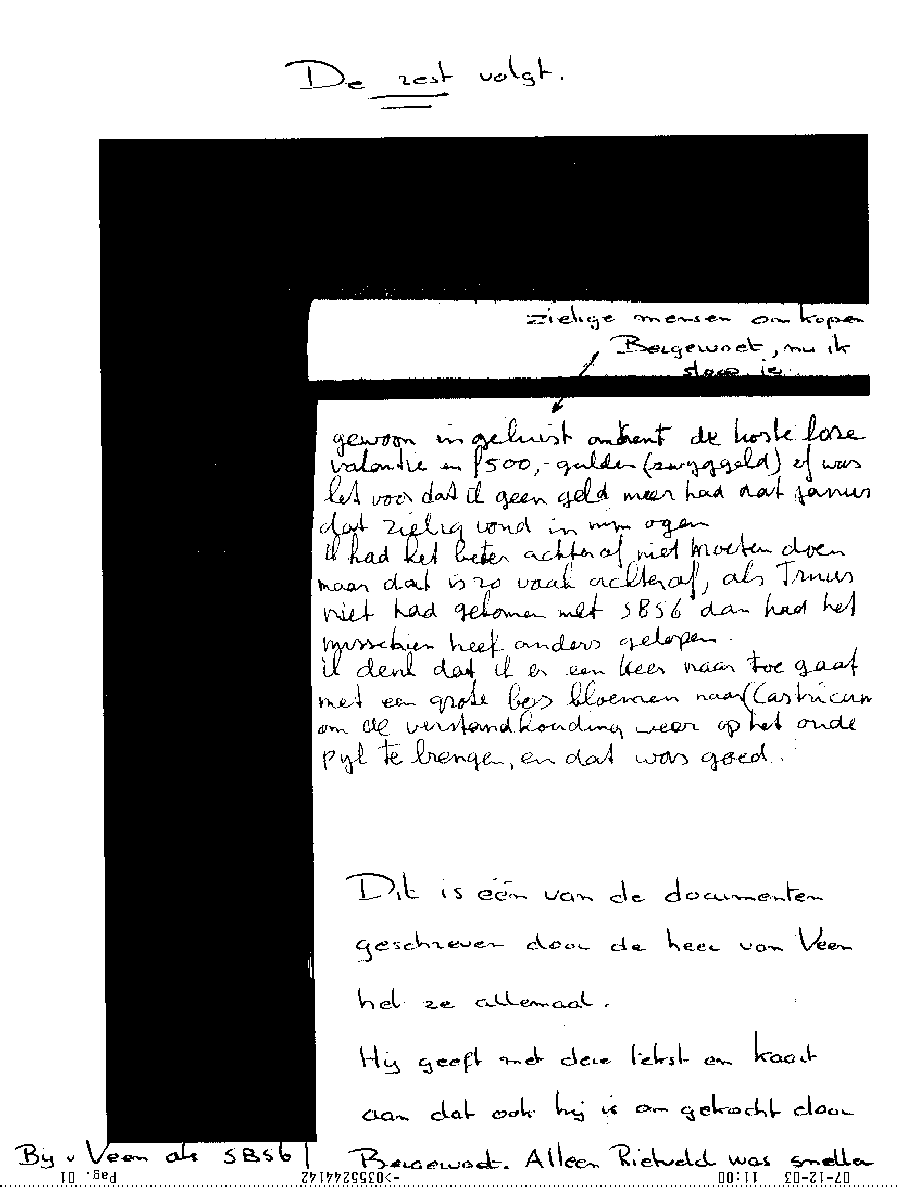 De rest volgt.
zielige mensen omkopen
Bergewoet, nu ik
gewoon in geluist omtrent de kosteloze
vakantie en f500,- gulden (zwyggeld) of was
het voor dat ik geen geld meer had dat
dat zielig vond in myn ogen
ik had het beter achteraf niet moeten doen
maar dat is zo vaak achteraf, als Truus
niet had gekomen met SBS6 dan had het
misschien heel anders gelopen.
ik denk dat ik er een keer naar toe gaat
met een grote bos bloemen naar (Castricum
om de verstandhouding weer op het oude
pyl te brengen, en dat was goed.
Dit is één van de documenten
geschreven door de heer van Veen
hel ze allemaal.
Hij geeft met deze tekst en kaart
aan dat ook hij is om gekocht door
By v Veen als SBS6
Bergewoet. Alleen Rietveld was sneller
07-12-03 11:00 ->0355244142 Pag. 01